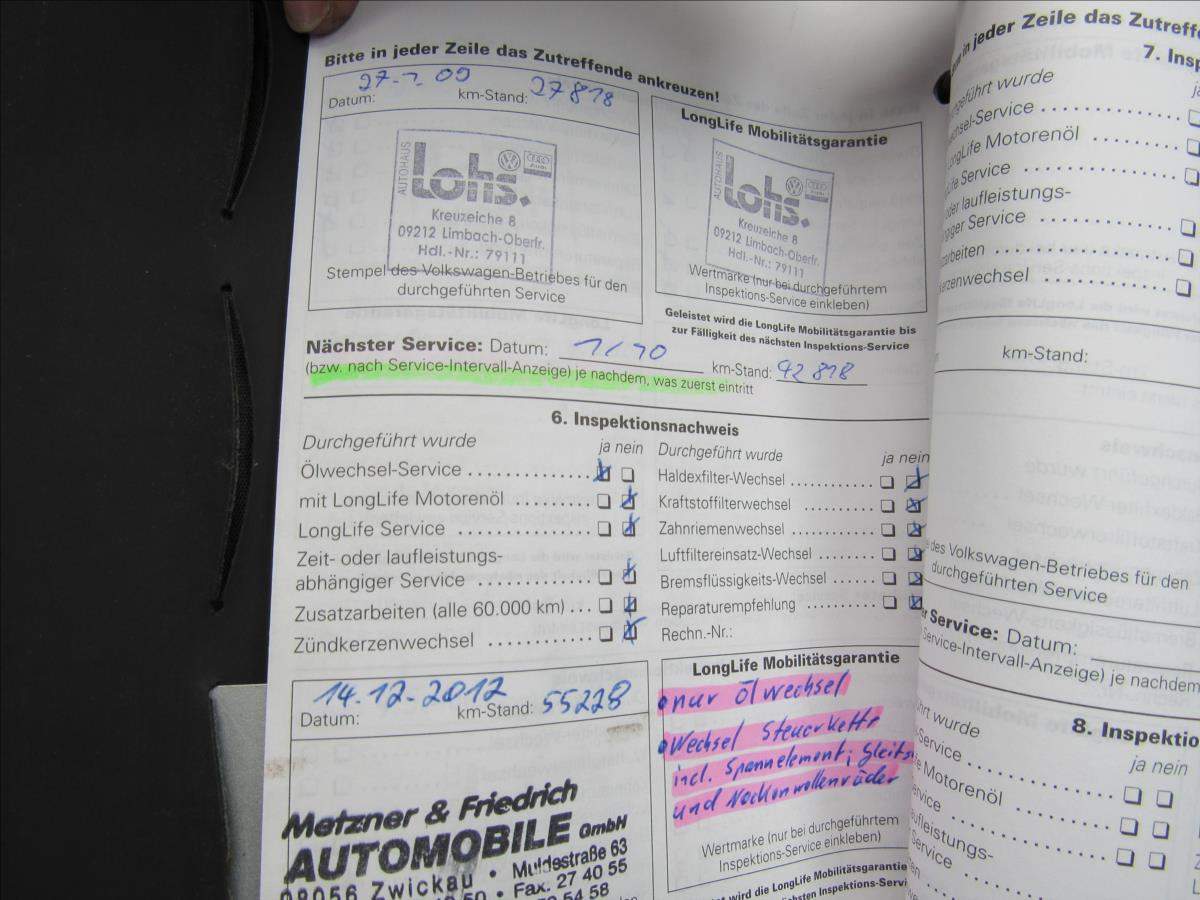 Bitte in jeder Zeile das Zutreffende ankreuzen!
Datum: 27.1.09 km-Stand: 27818
AUTOHAUS
Lohs.
Audi
Kreuzeiche 8
09212 Limbach-Oberfr.
Hdl.-Nr.: 79111
Stempel des Volkswagen-Betriebes für den
durchgeführten Service
LongLife Mobilitätsgarantie
AUTOHAUS
Lohs.
Kreuzeiche 8
09212 Limbach-Oberfr.
Hdl.-Nr.: 79111
Wertmarke (nur bei durchgeführtem
Inspektions-Service einkleben)
Geleistet wird die LongLife Mobilitätsgarantie bis
zur Fälligkeit des nächsten Inspektions-Service
Nächster Service: Datum: 1/10 km-Stand: 42 818
(bzw. nach Service-Intervall-Anzeige) je nachdem, was zuerst eintritt
6. Inspektionsnachweis
Durchgeführt wurde ja nein
Ölwechsel-Service
mit LongLife Motorenöl
LongLife Service
Zeit- oder laufleistungs-
abhängiger Service
Zusatzarbeiten (alle 60.000 km)
Zündkerzenwechsel
Durchgeführt wurde ja nein
Haldexfilter-Wechsel
Kraftstoffilterwechsel
Zahnriemenwechsel
Luftfiltereinsatz-Wechsel
Bremsflüssigkeits-Wechsel
Reparaturempfehlung
Rechn.-Nr.:
Datum: 14.12.2012 km-Stand: 55228
Metzner & Friedrich
AUTOMOBILE GmbH
08056 Zwickau • Muldestraße 63
50 • Fax. 27 40 55
54 58
LongLife Mobilitätsgarantie
• nur Ölwechsel
• Wechsel Steuerkette
incl. Spannelement, Gleits
und Nockenwellenräder
Wertmarke (nur bei durchgeführtem
Inspektions-Service einkleben)
wird die LongLife Mobilitätsgarantie
des nächsten Inspektions-Servi
in jeder Zeile das Zutreffe
7. Insp
geführt wurde ja
sel-Service
LongLife Motorenöl
Service
oder laufleistungs-
giger Service
arbeiten
kerzenwechsel
km-Stand:
des Volkswagen-Betriebes für den
durchgeführten Service
Service: Datum:
Service-Intervall-Anzeige) je nachdem
8. Inspektio
führt wurde ja nein
-Service
Motorenöl
ervice
aufleistungs-
Service